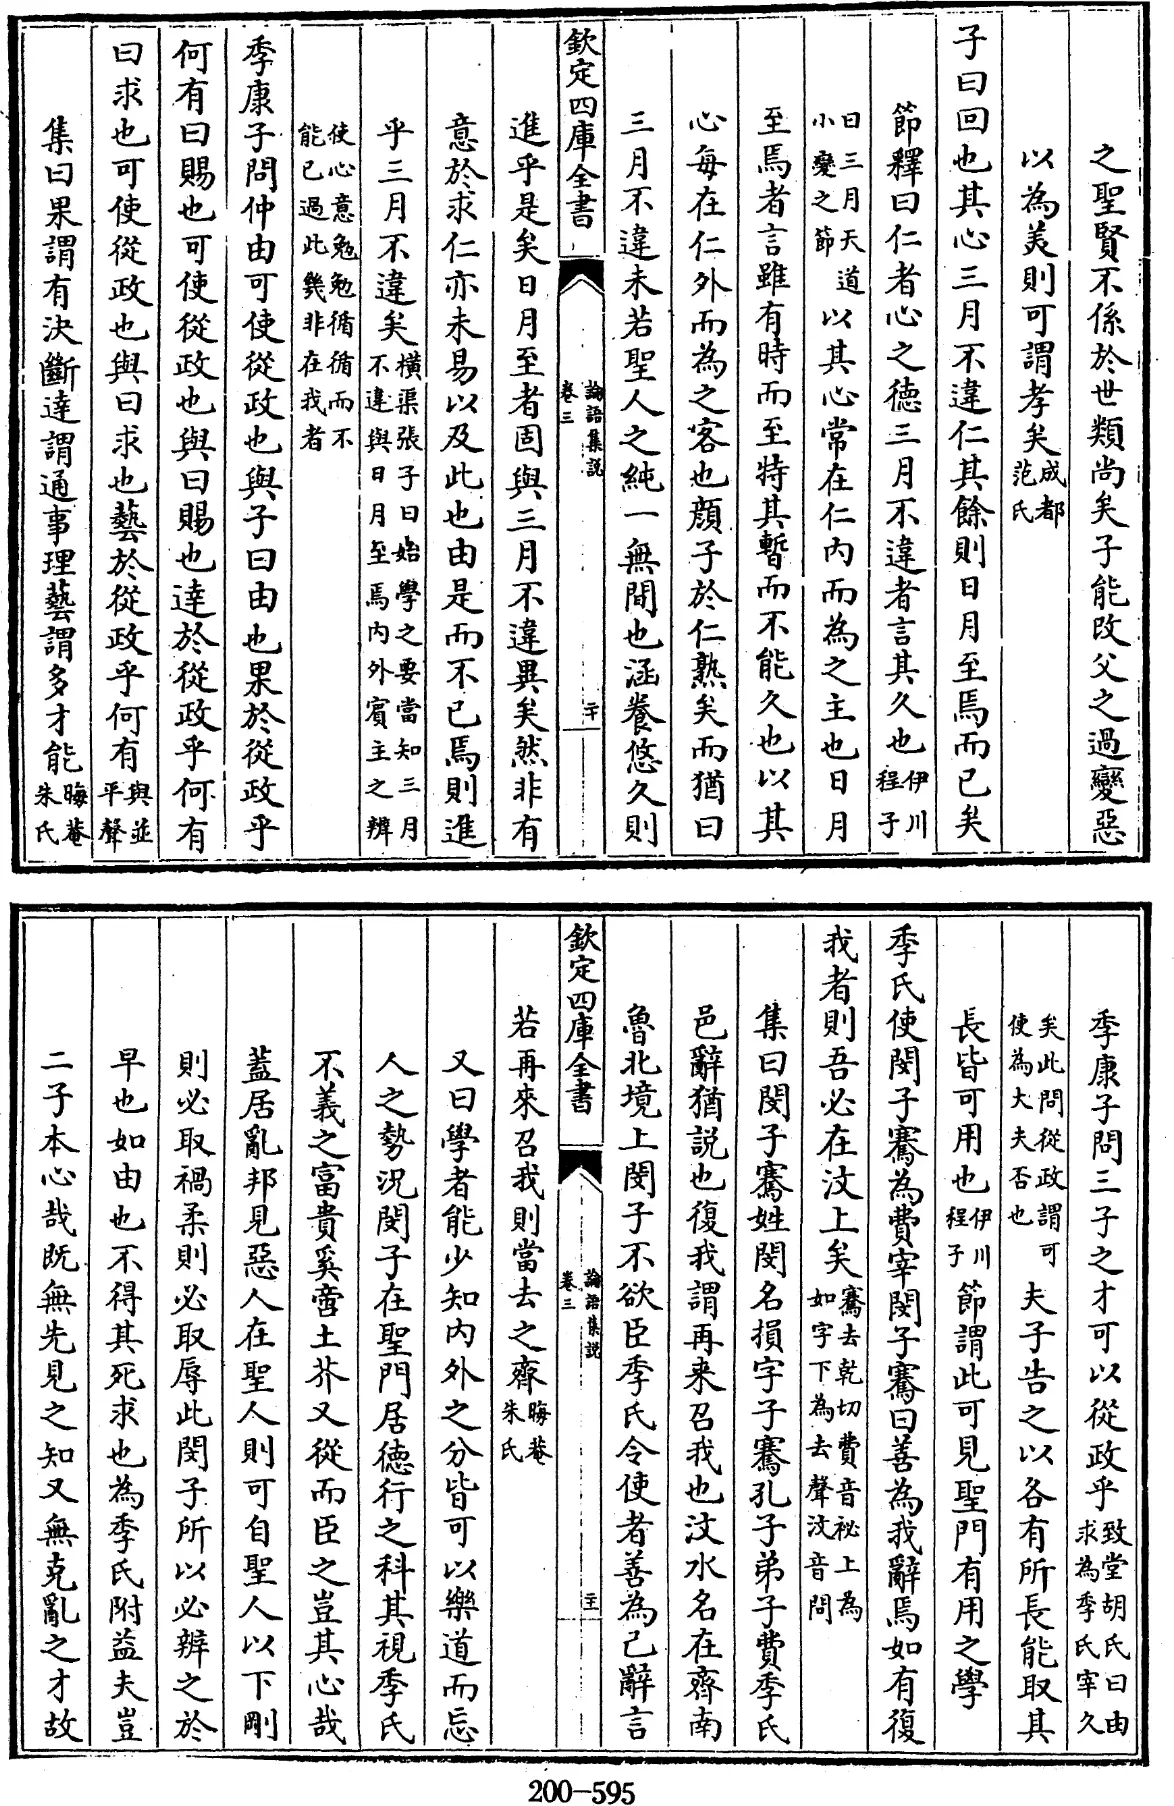 之聖賢不係於世類尚矣子能改父之過變惡
以為美則可謂孝矣成都范氏
子曰回也其心三月不違仁其餘則日月至焉而已矣
節釋曰仁者心之德三月不違者言其久也伊川程子
曰三月天道小變之節以其心常在仁内而為之主也日月
至焉者言雖有時而至特其暫而不能久也以其
心每在仁外而為之客也顔子於仁熟矣而猶曰
三月不違未若聖人之純一無間也涵養悠久則
欽定四庫全書 論語集説卷三 二十
進乎是矣日月至者固與三月不違異矣然非有
意於求仁亦未易以及此也由是而不已焉則進
乎三月不違矣橫渠張子曰始學之要當知三月不違與日月至焉内外賓主之辨
使心意勉勉循循而不能已過此幾非在我者
季康子問仲由可使從政也與子曰由也果於從政乎
何有曰賜也可使從政也與曰賜也達於從政乎何有
曰求也可使從政也與曰求也藝於從政乎何有與並平聲
集曰果謂有決斷達謂通事理藝謂多才能晦菴朱氏
季康子問三子之才可以從政乎致堂胡氏曰由求為季氏宰久
矣此問從政謂可使為大夫否也夫子告之以各有所長能取其
長皆可用也伊川程子節謂此可見聖門有用之學
季氏使閔子騫為費宰閔子騫曰善為我辭焉如有復
我者則吾必在汶上矣騫去乾切費音祕上為如字下為去聲汶音問
集曰閔子騫姓閔名損字子騫孔子弟子費季氏
邑辭猶說也復我謂再来召我也汶水名在齊南
魯北境上閔子不欲臣季氏令使者善為己辭言
欽定四庫全書 論語集説卷三 二十一
若再來召我則當去之齊晦菴朱氏
又曰學者能少知内外之分皆可以樂道而忘
人之勢況閔子在聖門居德行之科其視季氏
不義之富貴奚啻土芥又從而臣之豈其心哉
蓋居亂邦見惡人在聖人則可自聖人以下剛
則必取禍柔則必取辱此閔子所以必辨之於
早也如由也不得其死求也為季氏附益夫豈
二子本心哉既無先見之知又無克亂之才故
200-595